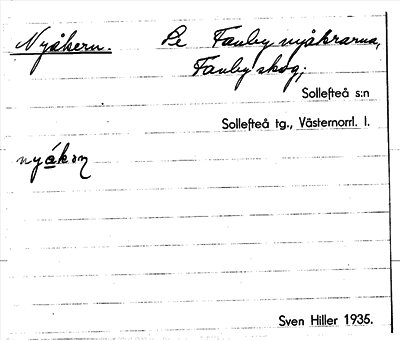 Nyåkern. Se Fanbynyåkrarna,
Fanby skog;
Sollefteå s:n
Sollefteå tg., Västernorrl. l.
Sven Hiller 1935.